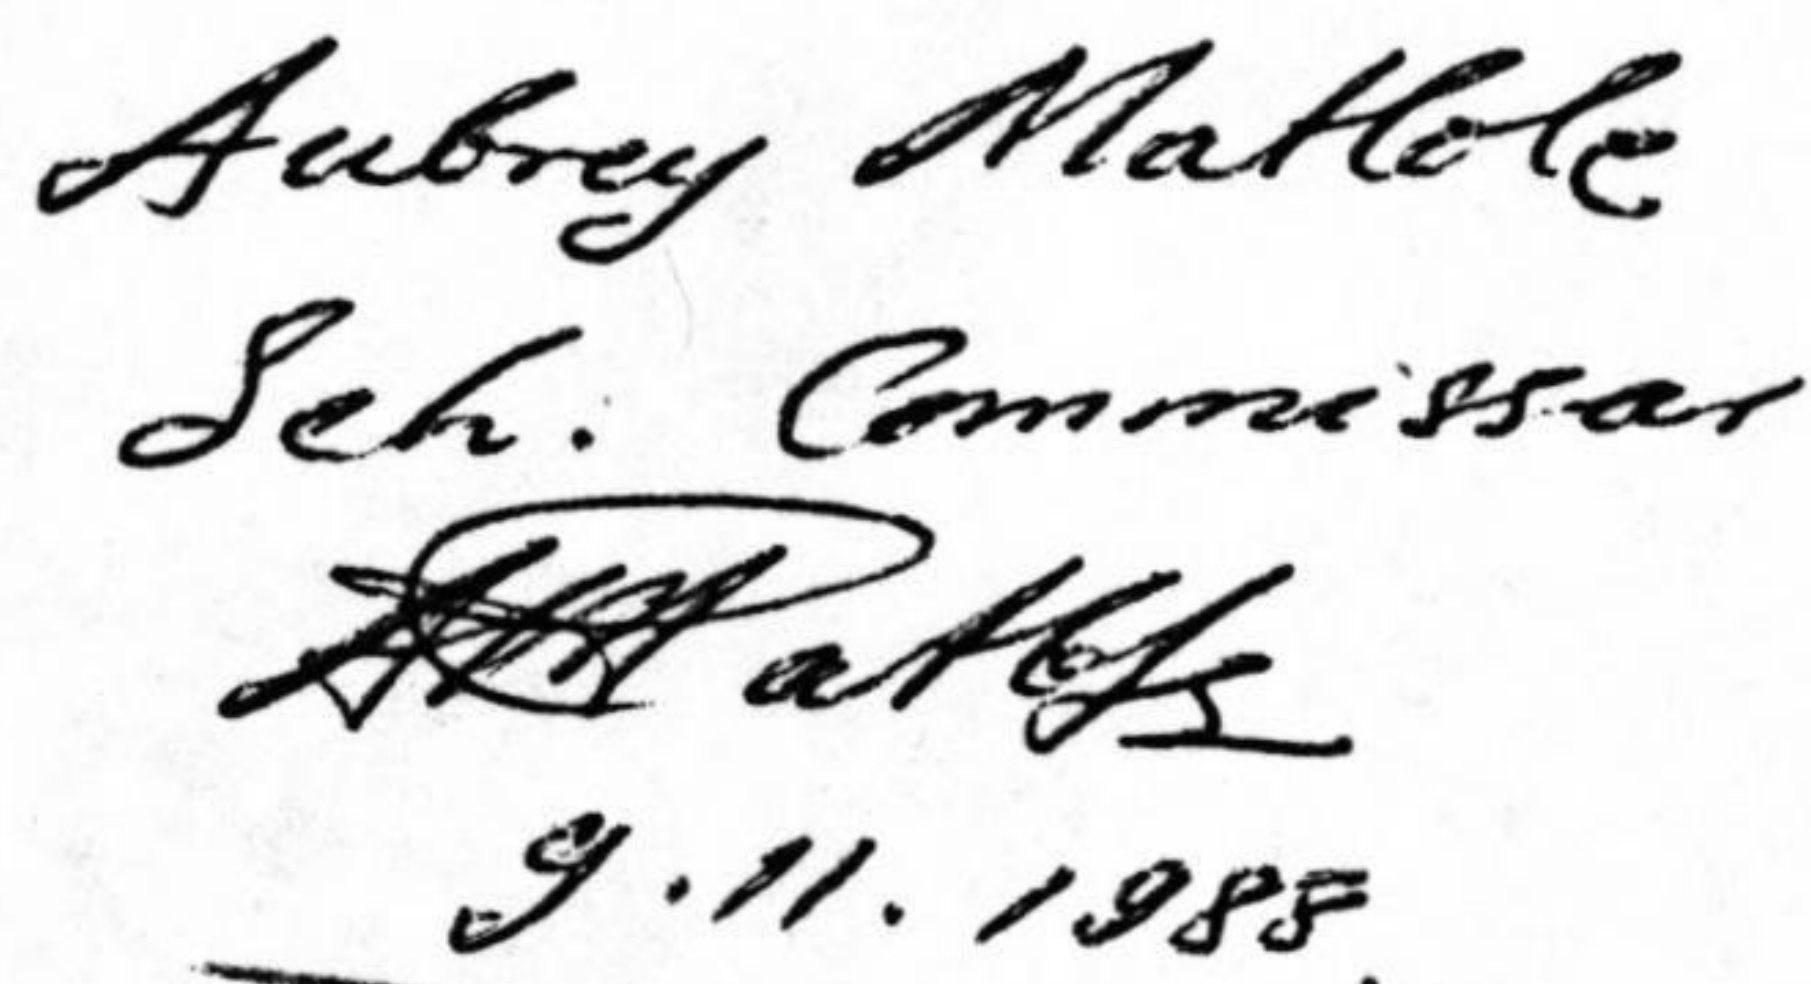 Aubrey Matlole
Sch. Commissar
9.11.1985.